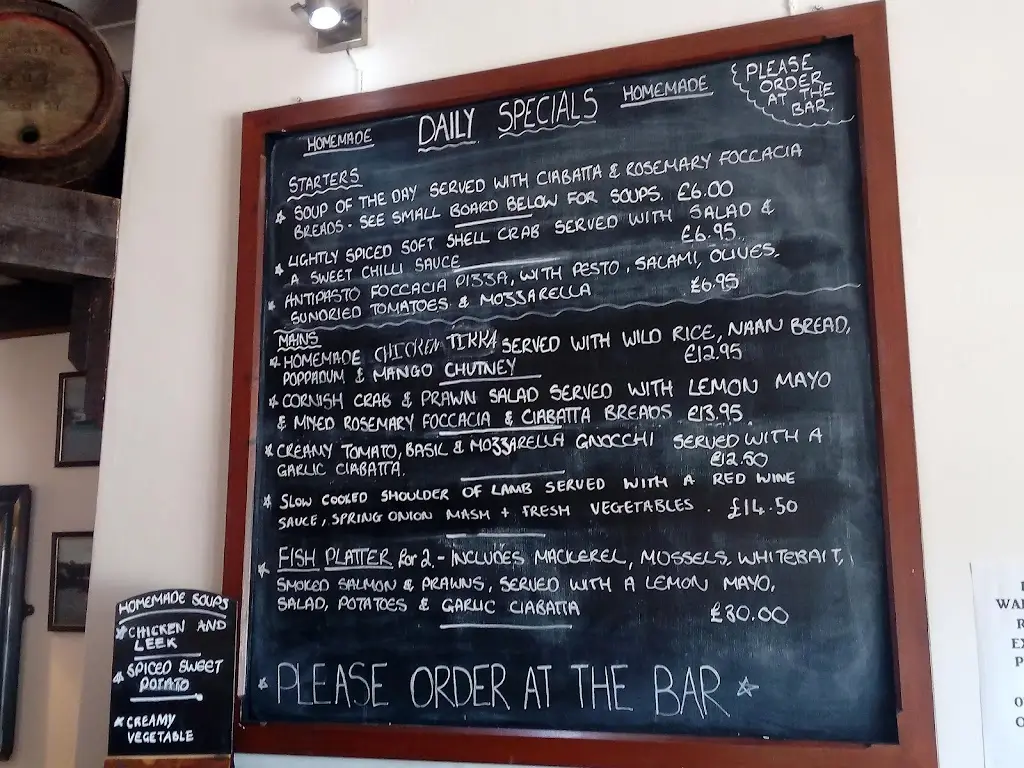 HOMEMADE DAILY SPECIALS HOMEMADE
PLEASE
ORDER
AT THE
BAR.
STARTERS
SOUP OF THE DAY SERVED WITH CIABATTA & ROSEMARY FOCCACIA
BREADS - SEE SMALL BOARD BELOW FOR SOUPS. £6.00
LIGHTLY SPICED SOFT SHELL CRAB SERVED WITH SALAD &
A SWEET CHILLI SAUCE £6.95
ANTIPASTO FOCCACIA PIZZA, WITH PESTO, SALAMI, OLIVES,
SUNDRIED TOMATOES & MOZZARELLA £6.95
MAINS
HOMEMADE CHICKEN TIKKA SERVED WITH WILD RICE, NAAN BREAD,
POPPADUM & MANGO CHUTNEY £12.95
CORNISH CRAB & PRAWN SALAD SERVED WITH LEMON MAYO
& MIXED ROSEMARY FOCCACIA & CIABATTA BREADS £13.95
CREAMY TOMATO, BASIL & MOZZARELLA GNOCCHI SERVED WITH A
GARLIC CIABATTA. £12.50
SLOW COOKED SHOULDER OF LAMB SERVED WITH A RED WINE
SAUCE, SPRING ONION MASH + FRESH VEGETABLES. £14.50
FISH PLATTER for 2 - INCLUDES MACKEREL, MUSSELS, WHITEBAIT,
SMOKED SALMON & PRAWNS, SERVED WITH A LEMON MAYO,
SALAD, POTATOES & GARLIC CIABATTA £30.00
PLEASE ORDER AT THE BAR
HOMEMADE SOUPS
CHICKEN AND
LEEK
SPICED SWEET
POTATO
CREAMY
VEGETABLE